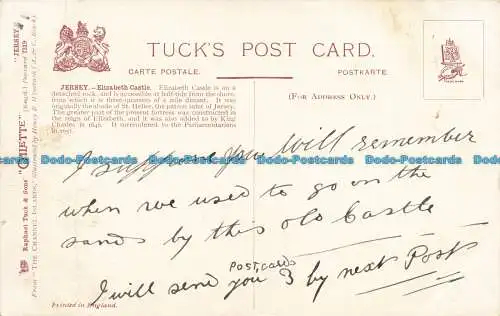 TUCK'S POST CARD.
CARTE POSTALE.
POSTKARTE.
(FOR ADDRESS ONLY.)
JERSEY.—Elizabeth Castle. Elizabeth Castle is on a
detached rock, and is accessible at half-tide from the shore,
from which it is three-quarters of a mile distant. It was
originally the abode of St. Helier, the patron saint of Jersey.
The greater part of the present fortress was constructed in
the reign of Elizabeth, and it was also added to by King
Charles in 1646. It surrendered to the Parliamentarians
in 1651.
Raphael Tuck & Sons' "OILETTE" [Regd.] Postcard 7219 "JERSEY."
From "THE CHANNEL ISLANDS," Illustrated by Henry B. Wimbush (A. & C. Black.)
I suppose you Will remember
when we used to go on the
sands by this old Castle
Postcards
I will send you 3 by next Post
Printed in England.
www.delcampe.net